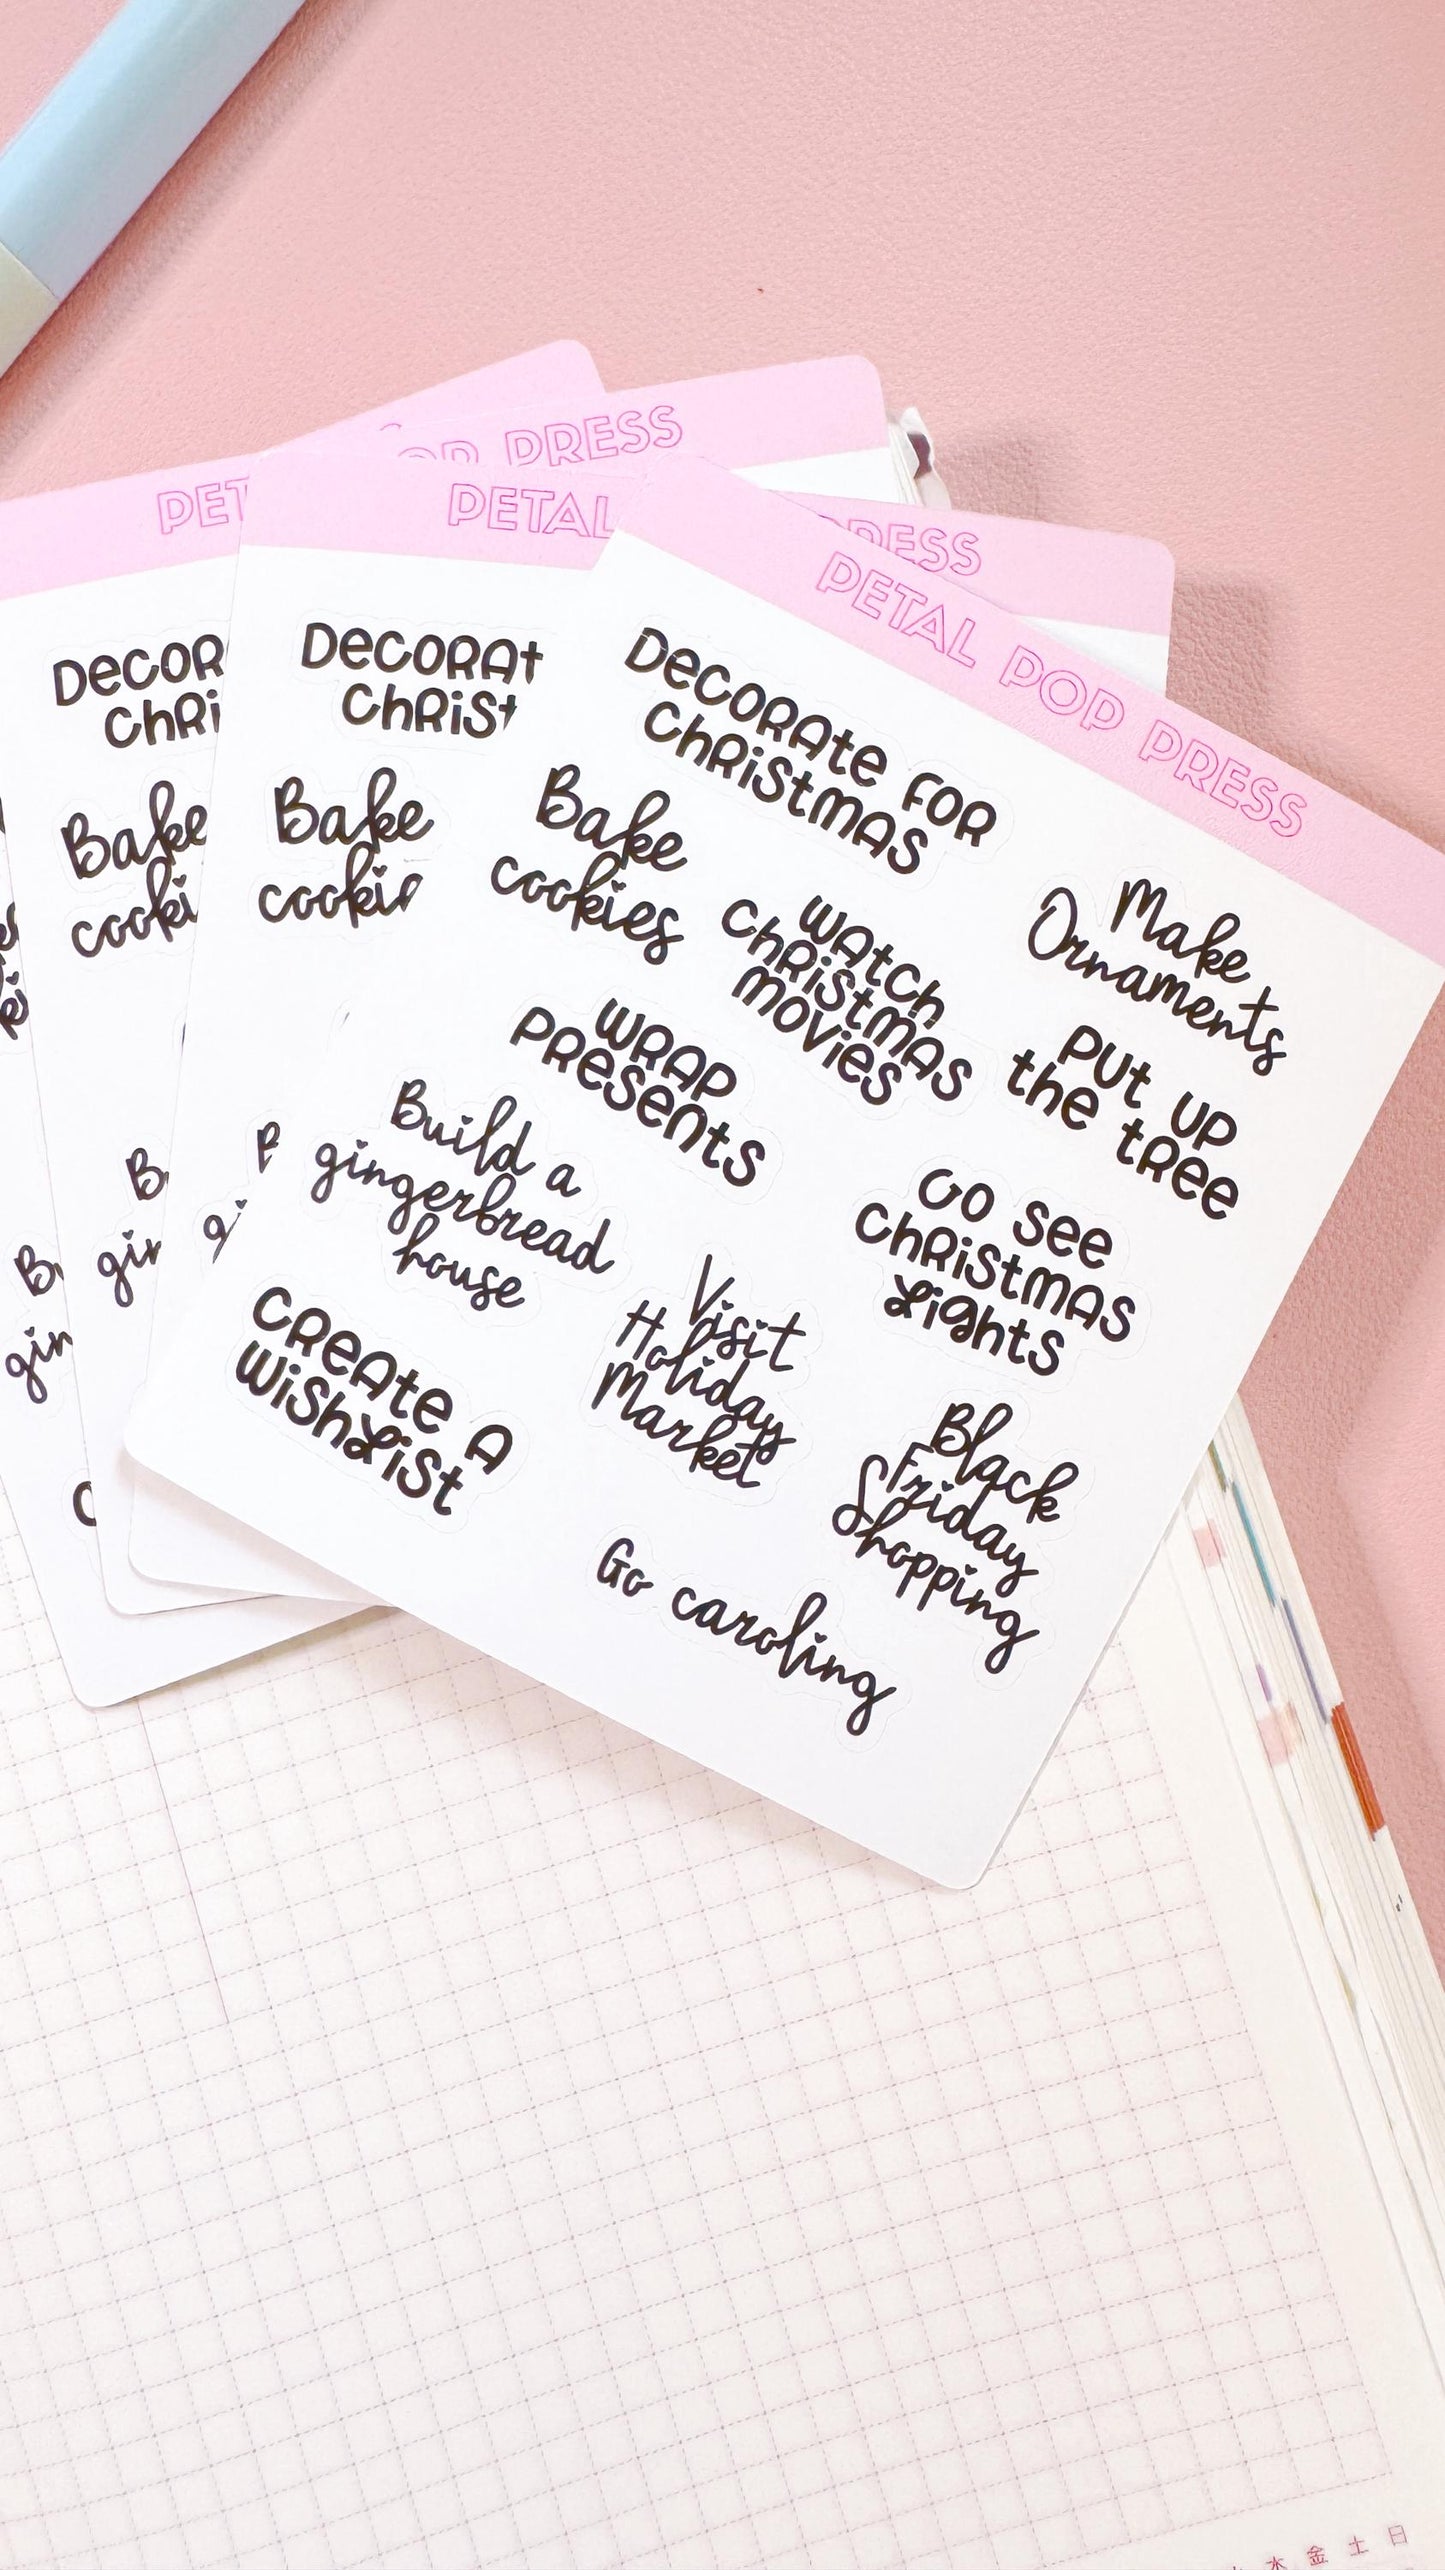 PETAL POP PRESS
DECORATE FOR
CHRISTMAS
Bake
cookies
WATCH
CHRISTMAS
MOVIES
Make
Ornaments
WRAP
PRESENTS
PUT UP
the tree
Build a
gingerbread
house
GO see
CHRISTMAS
Lights
CREATE A
WishList
Visit
Holiday
Market
Black
Friday
Shopping
Go caroling
PETAL
PRESS
DECORAT
CHRIST
Bake
cooki
PET
POP PRESS
DECOR
CHRI
Bake
cooki
B
gin
B
gin
水 金 土 日